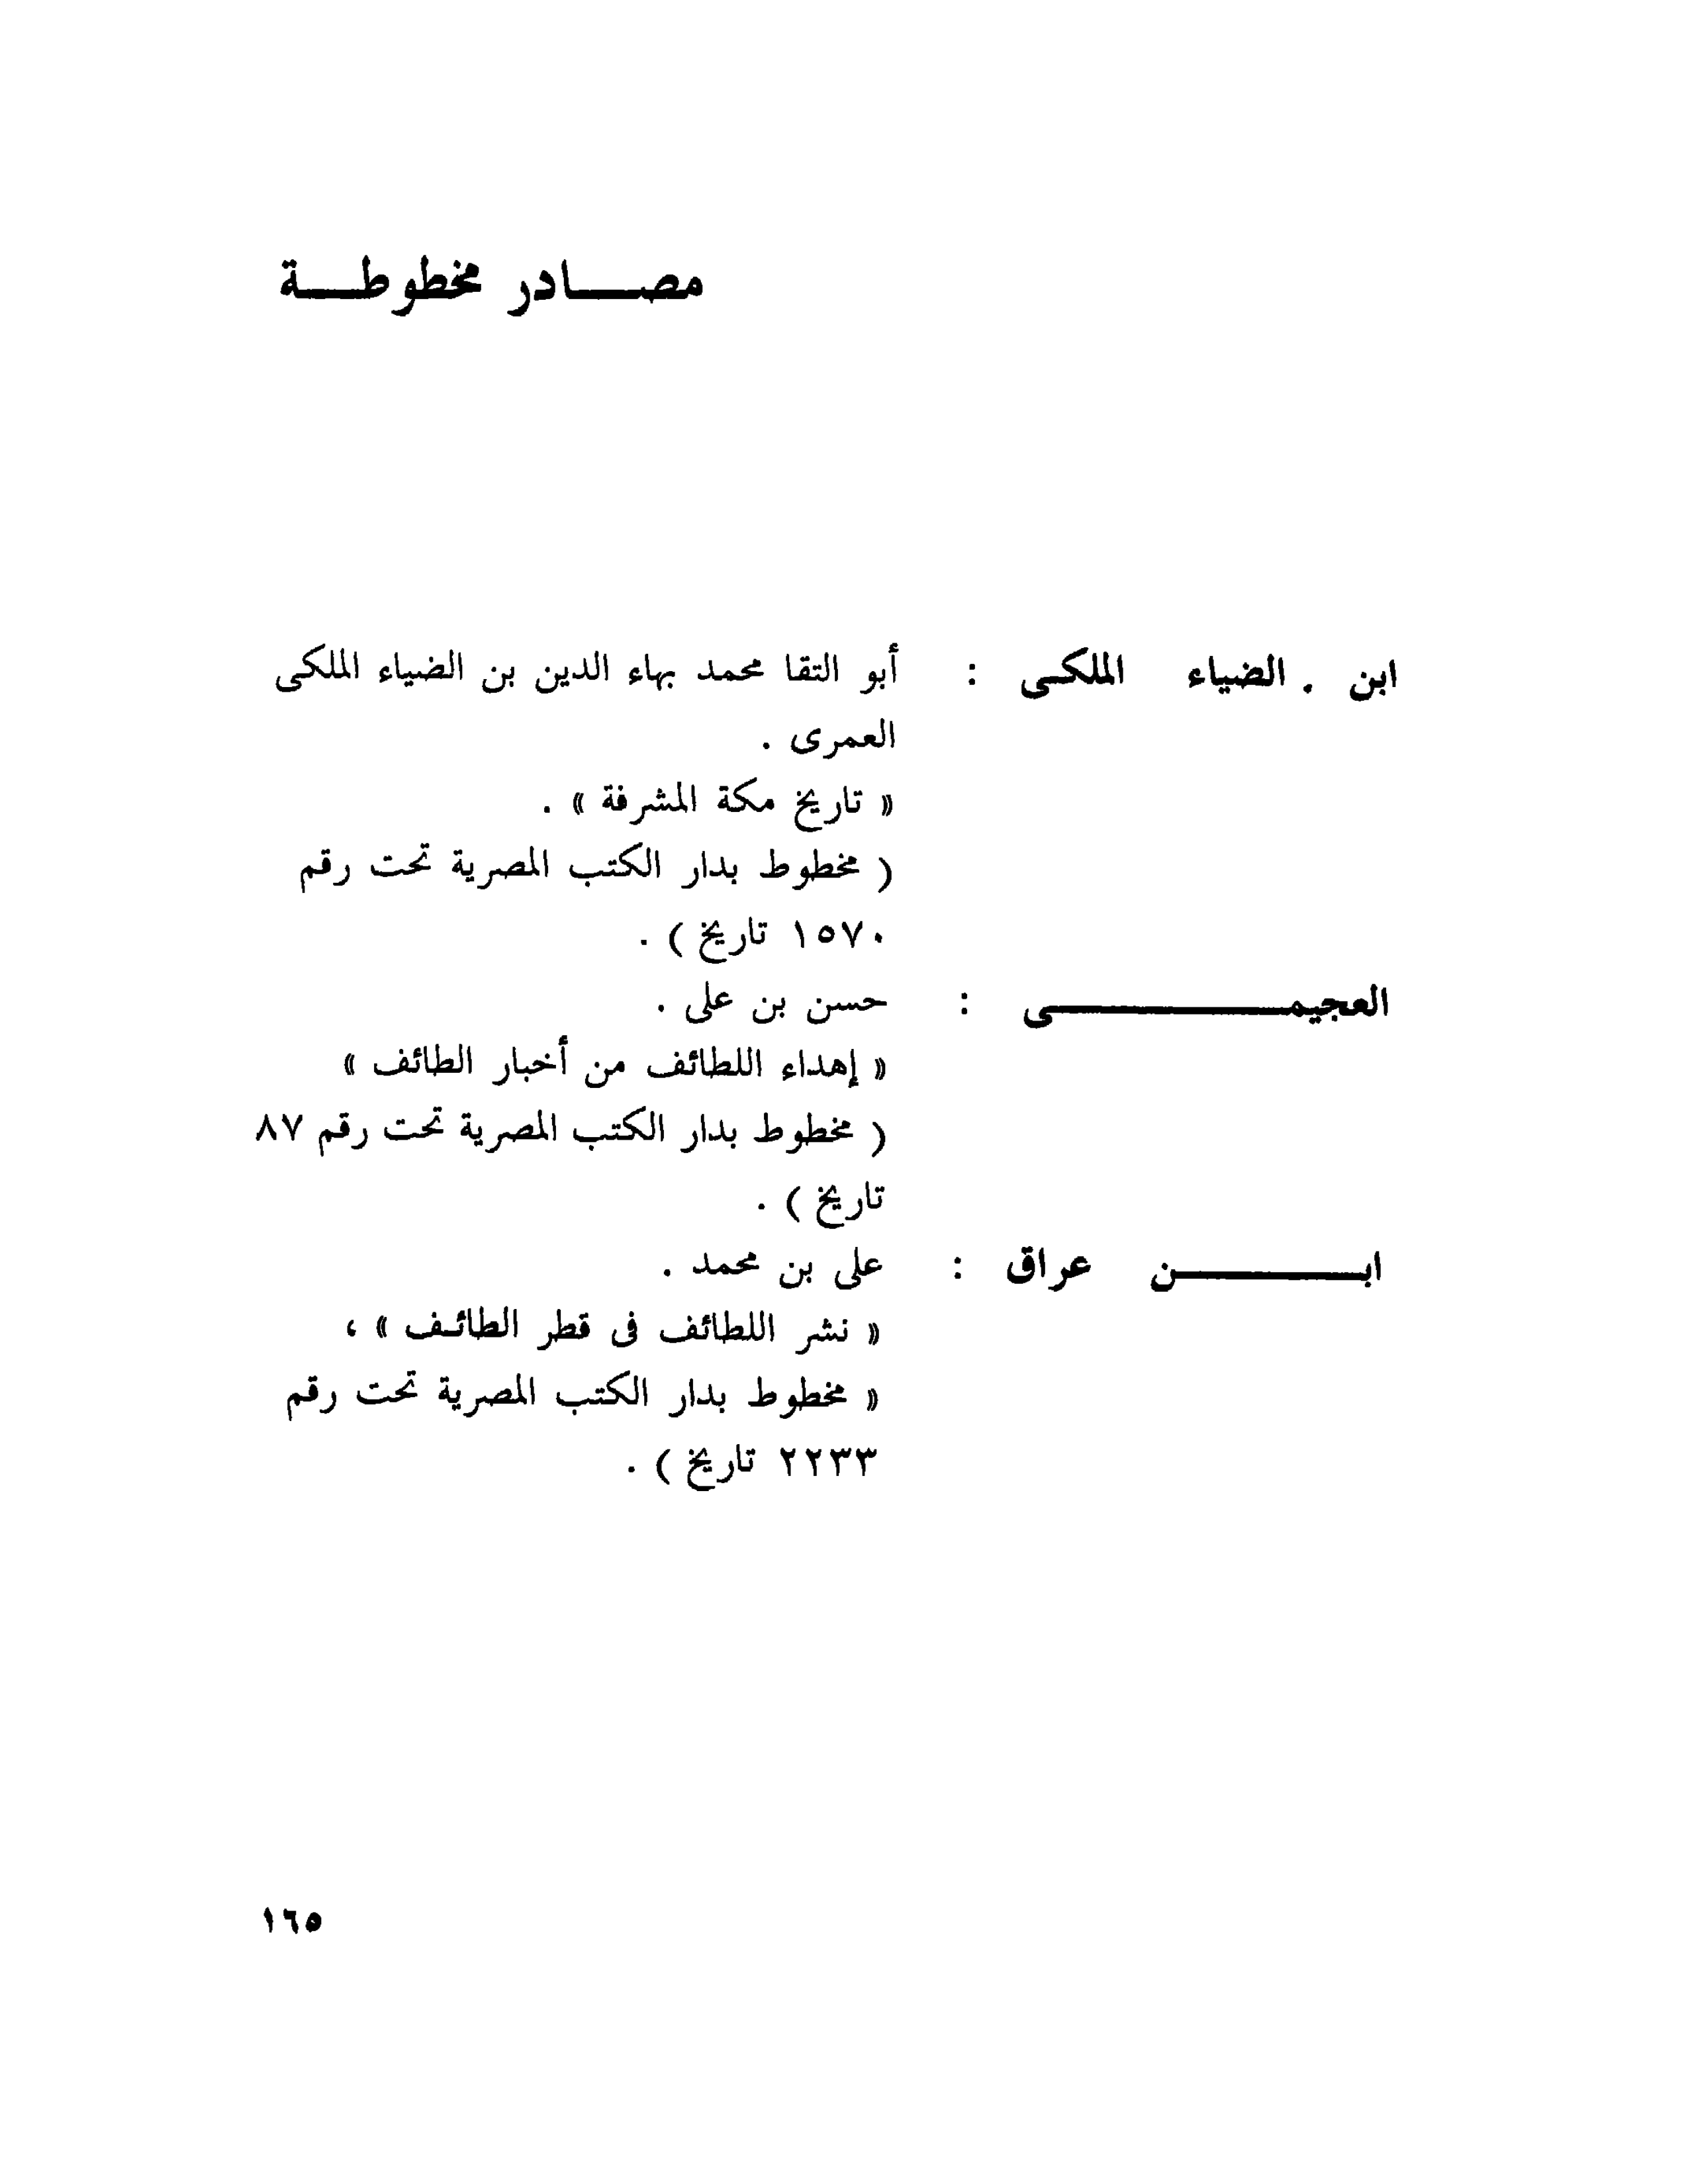 مصادر مخطوطة
ابن . الضياء الملكى : أبو التقا محمد بهاء الدين بن الضياء الملكى
العمرى .
« تاريخ مكة المشرفة » .
( مخطوط بدار الكتب المصرية تحت رقم
١٥٧٠ تاريخ ) .
العجيمى : حسن بن على .
« إهداء اللطائف من أخبار الطائف »
( مخطوط بدار الكتب المصرية تحت رقم ٨٧
تاريخ ) .
ابن عراق : على بن محمد .
« نشر اللطائف فى قطر الطائف » ،
« مخطوط بدار الكتب المصرية تحت رقم
٢٢٣٣ تاريخ ) .
١٦٥